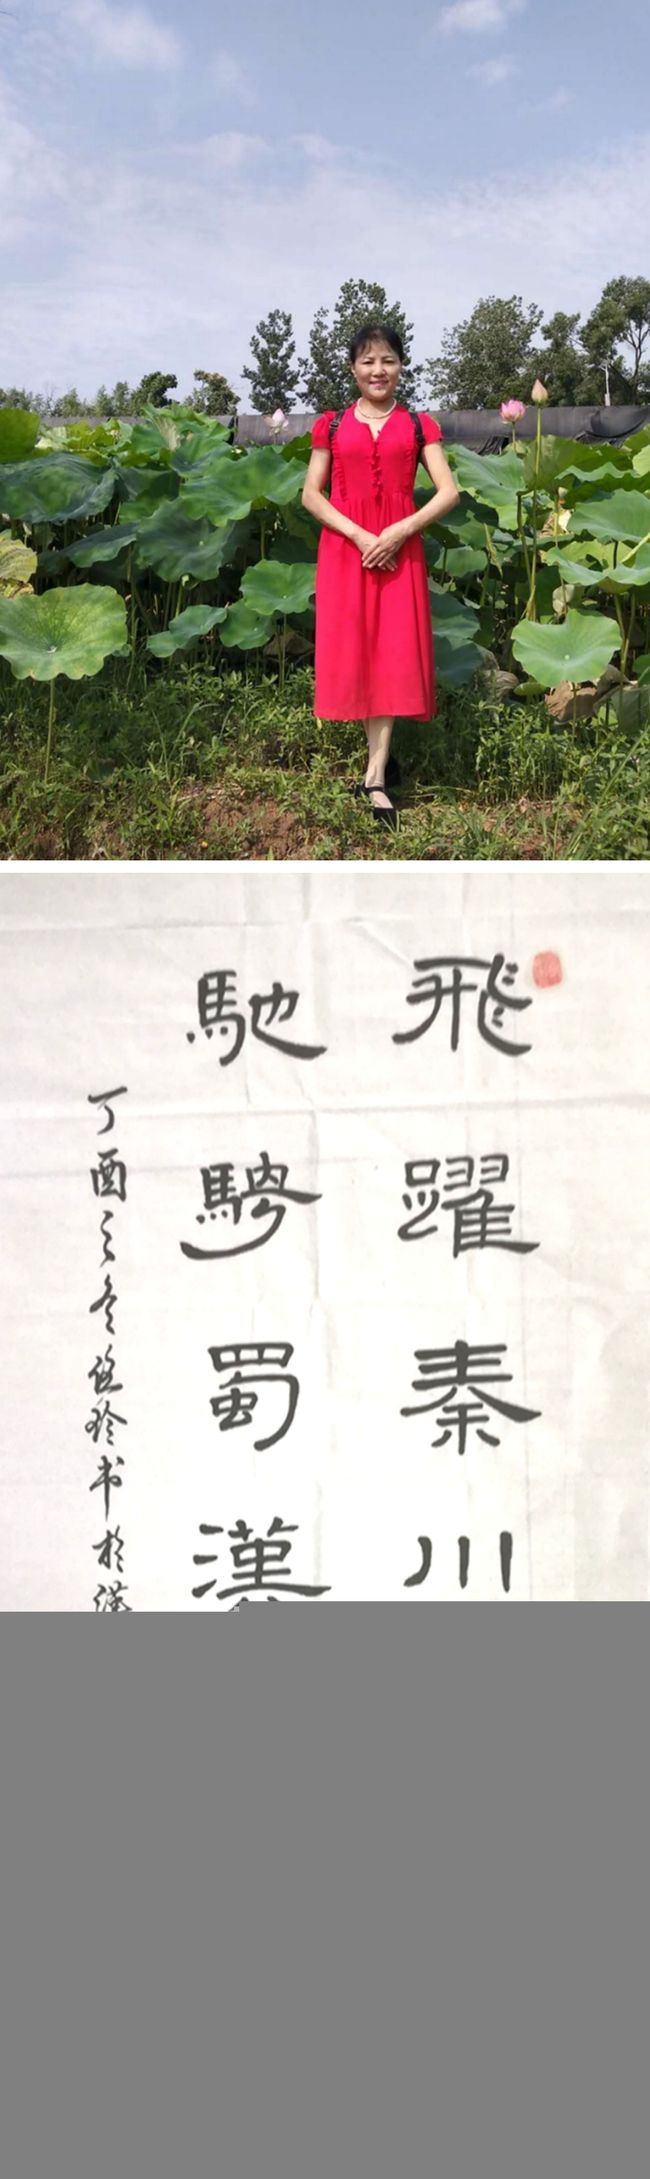 飛躍秦川
馳騁蜀漢
丁酉之冬 玲书於漢